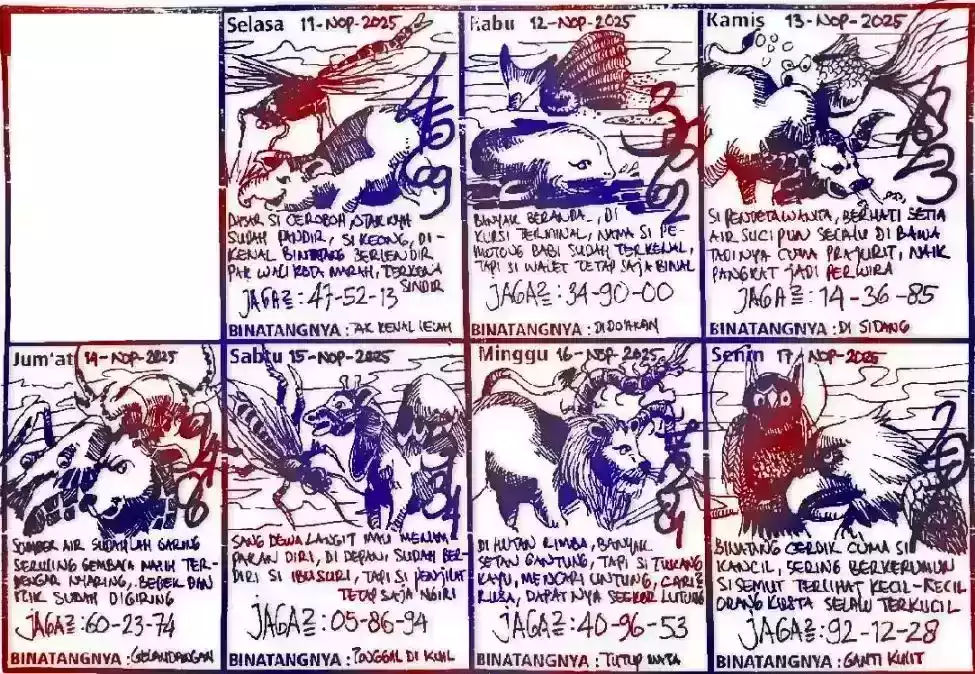 Selasa 11-NOP-2025
DASAR SI CEROBOH, OTAKNYA
SUDAH PANDIR, SI KEONG, DI-
KENAL BINATANG BERLENDIR
PAK WALI KOTA MARAH, TERKENA
SINDIR
JAGA2 : 47-52-13
BINATANGNYA : TAK KENAL LELAH
Rabu 12-NOP-2025
BANYAK BERANDA, DI
KURSI TERMINAL, NAMA SI PE-
MOTONG BABI SUDAH TERKENAL,
TAPI SI WALET TETAP SAJA BINAL
JAGA2 : 34-90-00
BINATANGNYA : DIDO'AKAN
Kamis 13-NOP-2025
SI PENDETA WANITA, BERHATI SETIA
AIR SUCI PUN SELALU DI BAWA
TADINYA CUMA PRAJURIT, NAIK
PANGKAT JADI PERWIRA
JAGA2 : 14-36-85
BINATANGNYA : DI SIDANG
Jum'at 14-NOP-2025
SUMBER AIR SUDAHLAH GARING
SERULING GEMBALA MASIH TER-
DENGAR NYARING, BEBEK DAN
ITIK SUDAH DIGIRING
JAGA2 : 60-23-74
BINATANGNYA : GELANDANGAN
Sabtu 15-NOP-2025
SANG DEWA LANGIT MAU MENAM
PAKAN DIRI, DI DEPAN, SUDAH BER-
DIRI SI IBUSURI, TAPI SI PENJILAT
TETAP SAJA NGIRI
JAGA2 : 05-86-94
BINATANGNYA : TINGGAL DI KUIL
Minggu 16-NOP-2025
DI HUTAN RIMBA, BANYAK
SETAN GANTUNG, TAPI SI TUKANG
KAYU, MENCARI UNTUNG, CARI2
RUSA, DAPATNYA SEEKOR LUTUNG
JAGA2 : 40-96-53
BINATANGNYA : TUTUP MATA
Senin 17-NOP-2025
BINATANG CERDIK CUMA SI
KANCIL, SERING BERKERUMUN
SI SEMUT TERLIHAT KECIL-KECIL
ORANG KUSTA SELALU TERKUCIL
JAGA2 : 92-12-28
BINATANGNYA : GANTI KULIT